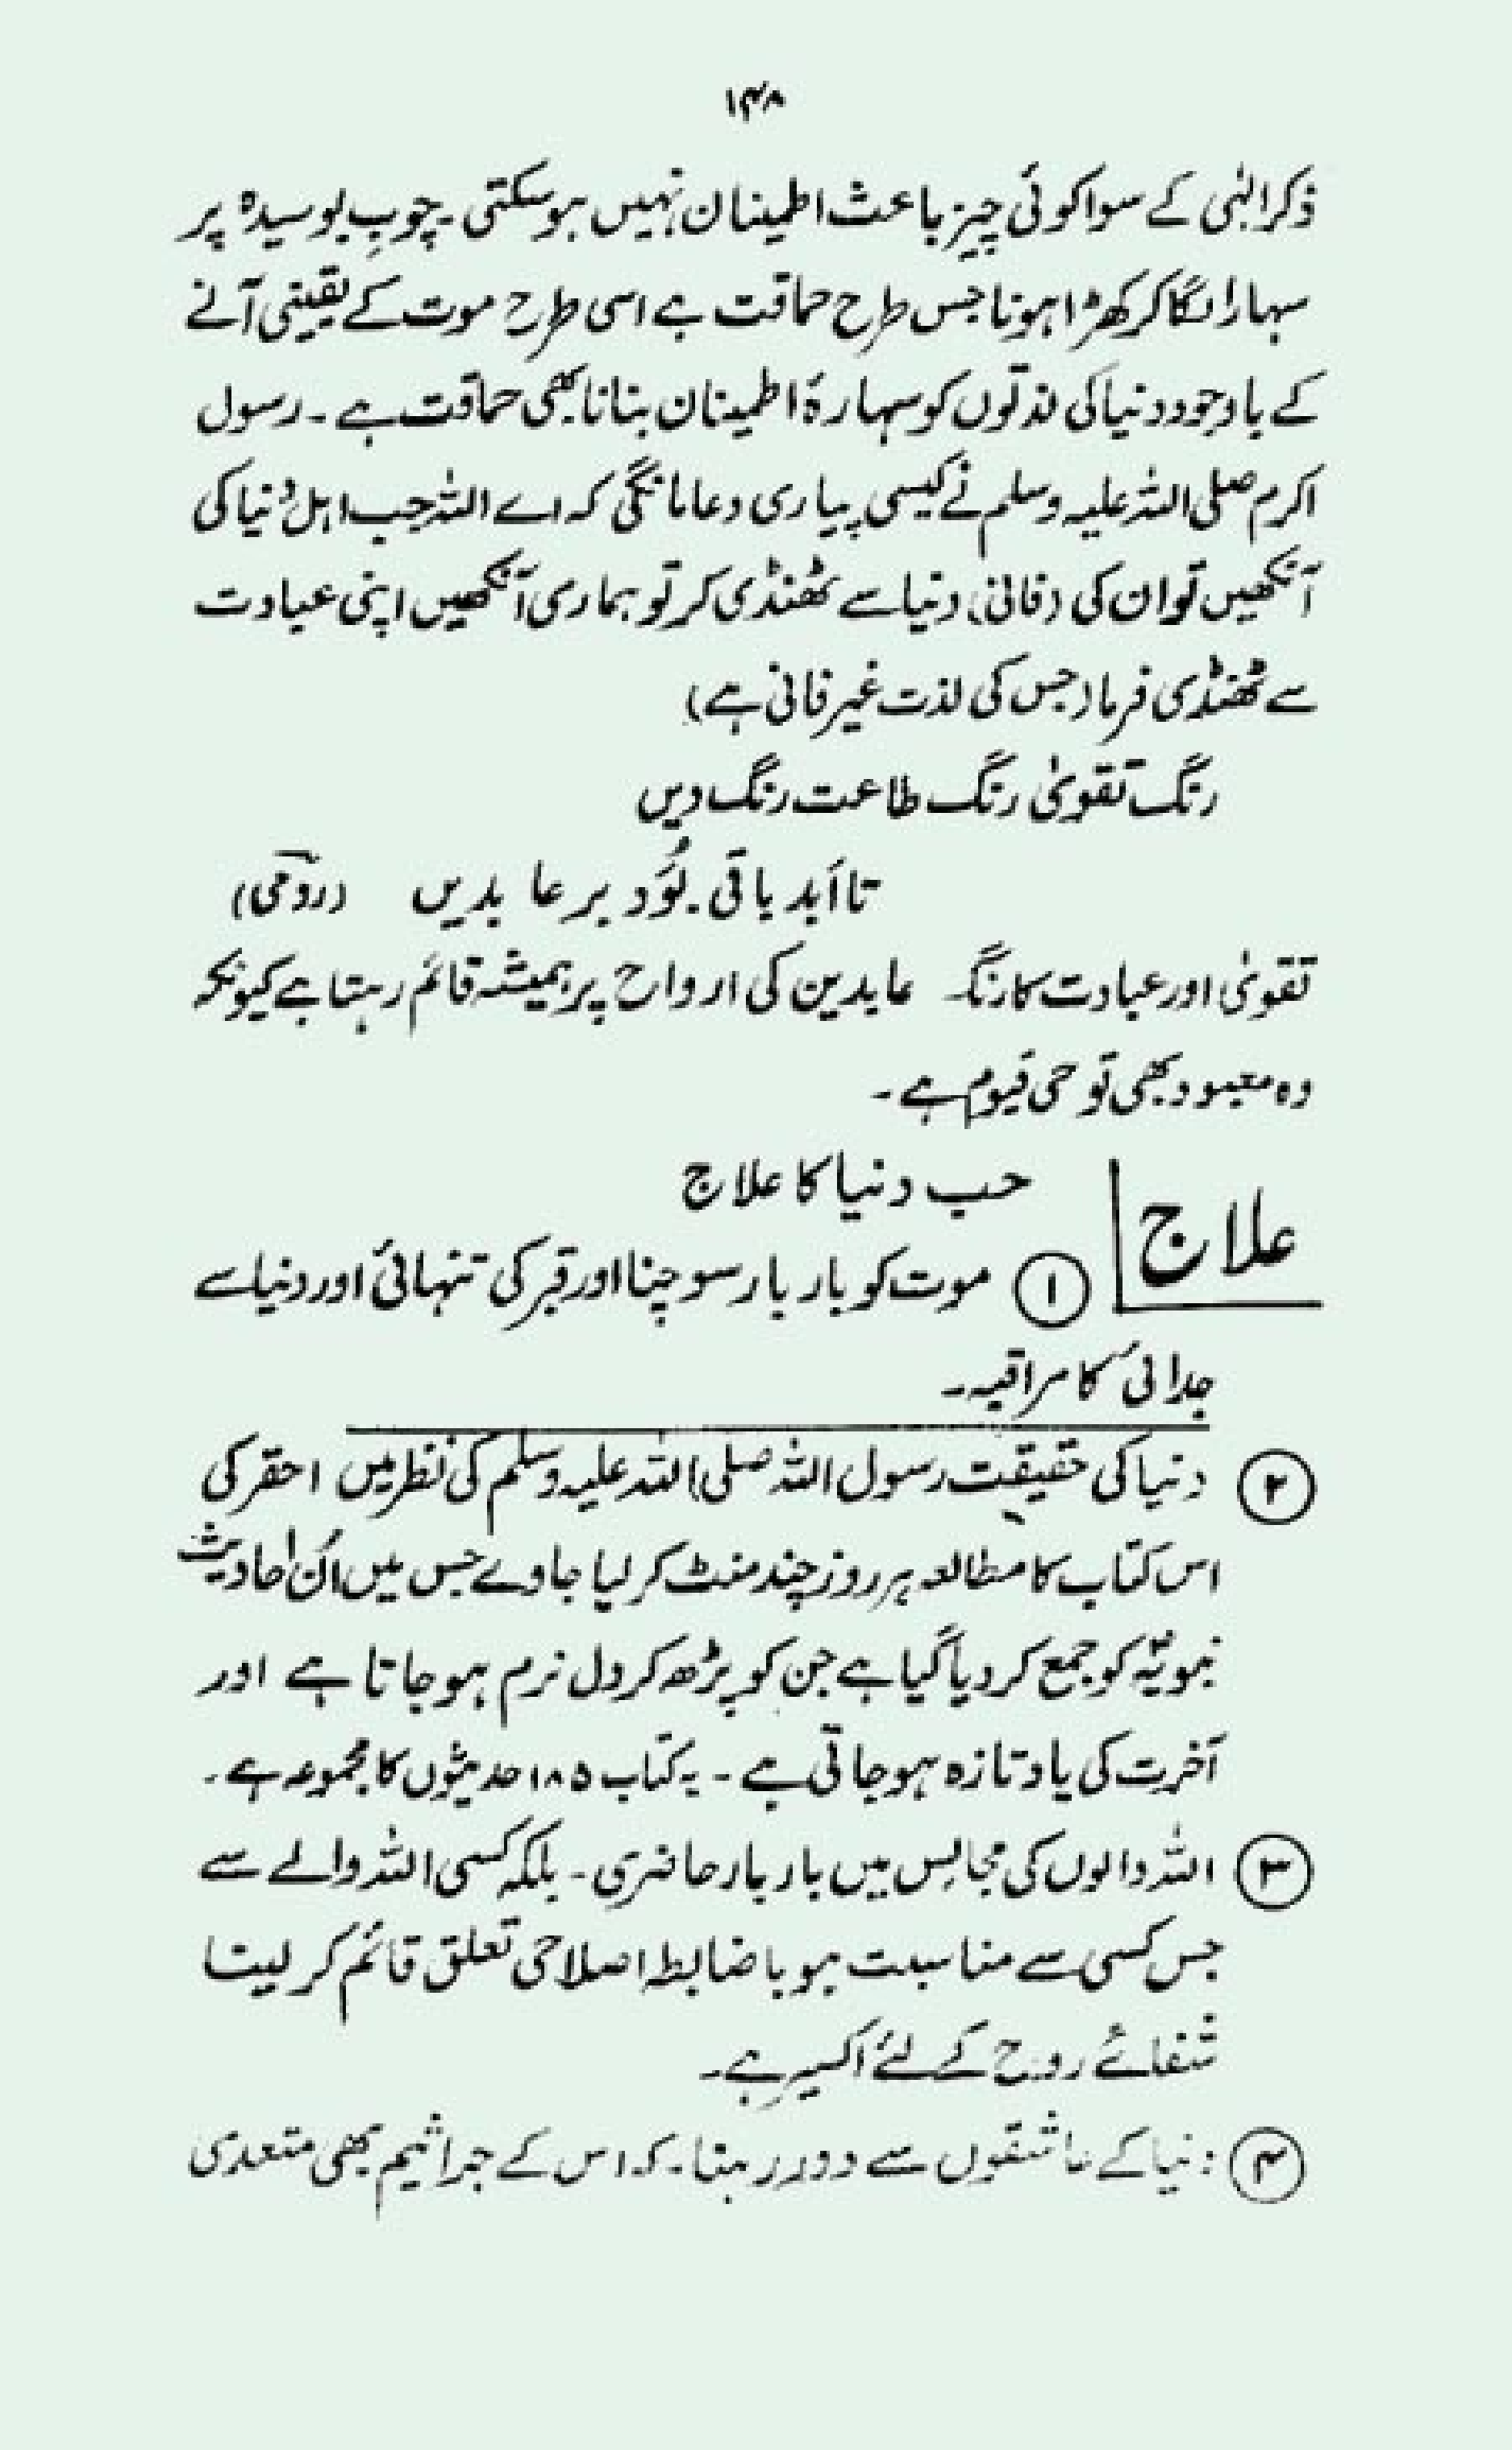 ۱۴۸
ذکر الٰہی کے سوا کوئی چیز باعث اطمینان نہیں ہوسکتی۔ چوبِ بوسیدہ پر
سہارا لگا کر کھڑا ہونا جس طرح حماقت ہے اسی طرح موت کے یقینی آنے
کے باوجود دنیا کی لذتوں کو سہارۂ اطمینان بنانا بھی حماقت ہے۔ رسول
اکرم صلی اللہ علیہ وسلم نے کیسی پیاری دعا مانگی کہ اے اللہ جب اہل دُنیا کی
آنکھیں تو ان کی (فانی) دنیا سے ٹھنڈی کر تو ہماری آنکھیں اپنی عبادت
سے ٹھنڈی فرما (جس کی لذت غیر فانی ہے)
رنگ تقویٰ رنگ طاعت رنگ دیں
تا اَبد باقی بُوَد بر عابدیں (رومیؒ)
تقویٰ اور عبادت کا رنگ عابدین کی ارواح پر ہمیشہ قائم رہتا ہے کیونکہ
وہ معبود بھی تو حی قیوم ہے۔
علاج
حب دنیا کا علاج
① موت کو بار بار سوچنا اور قبر کی تنہائی اور دنیا سے
جدائی کا مراقبہ۔
② دنیا کی حقیقت رسول اللہ صلی اللہ علیہ وسلم کی نظر میں احقر کی
اس کتاب کا مطالعہ ہر روز چند منٹ کر لیا جاوے جس میں اُن احادیث
نبویّہ کو جمع کر دیا گیا ہے جن کو پڑھ کر دل نرم ہو جاتا ہے اور
آخرت کی یاد تازہ ہو جاتی ہے۔ یہ کتاب ۱۸۵ حدیثوں کا مجموعہ ہے۔
③ اللہ والوں کی مجالس میں بار بار حاضری۔ بلکہ کسی اللہ والے سے
جس کسی سے مناسبت ہو باضابطہ اصلاحی تعلق قائم کر لینا
شفائے روح کے لئے اکسیر ہے۔
④ دنیا کے عاشقوں سے دور رہنا۔ کہ اس کے جراثیم بھی متعدی